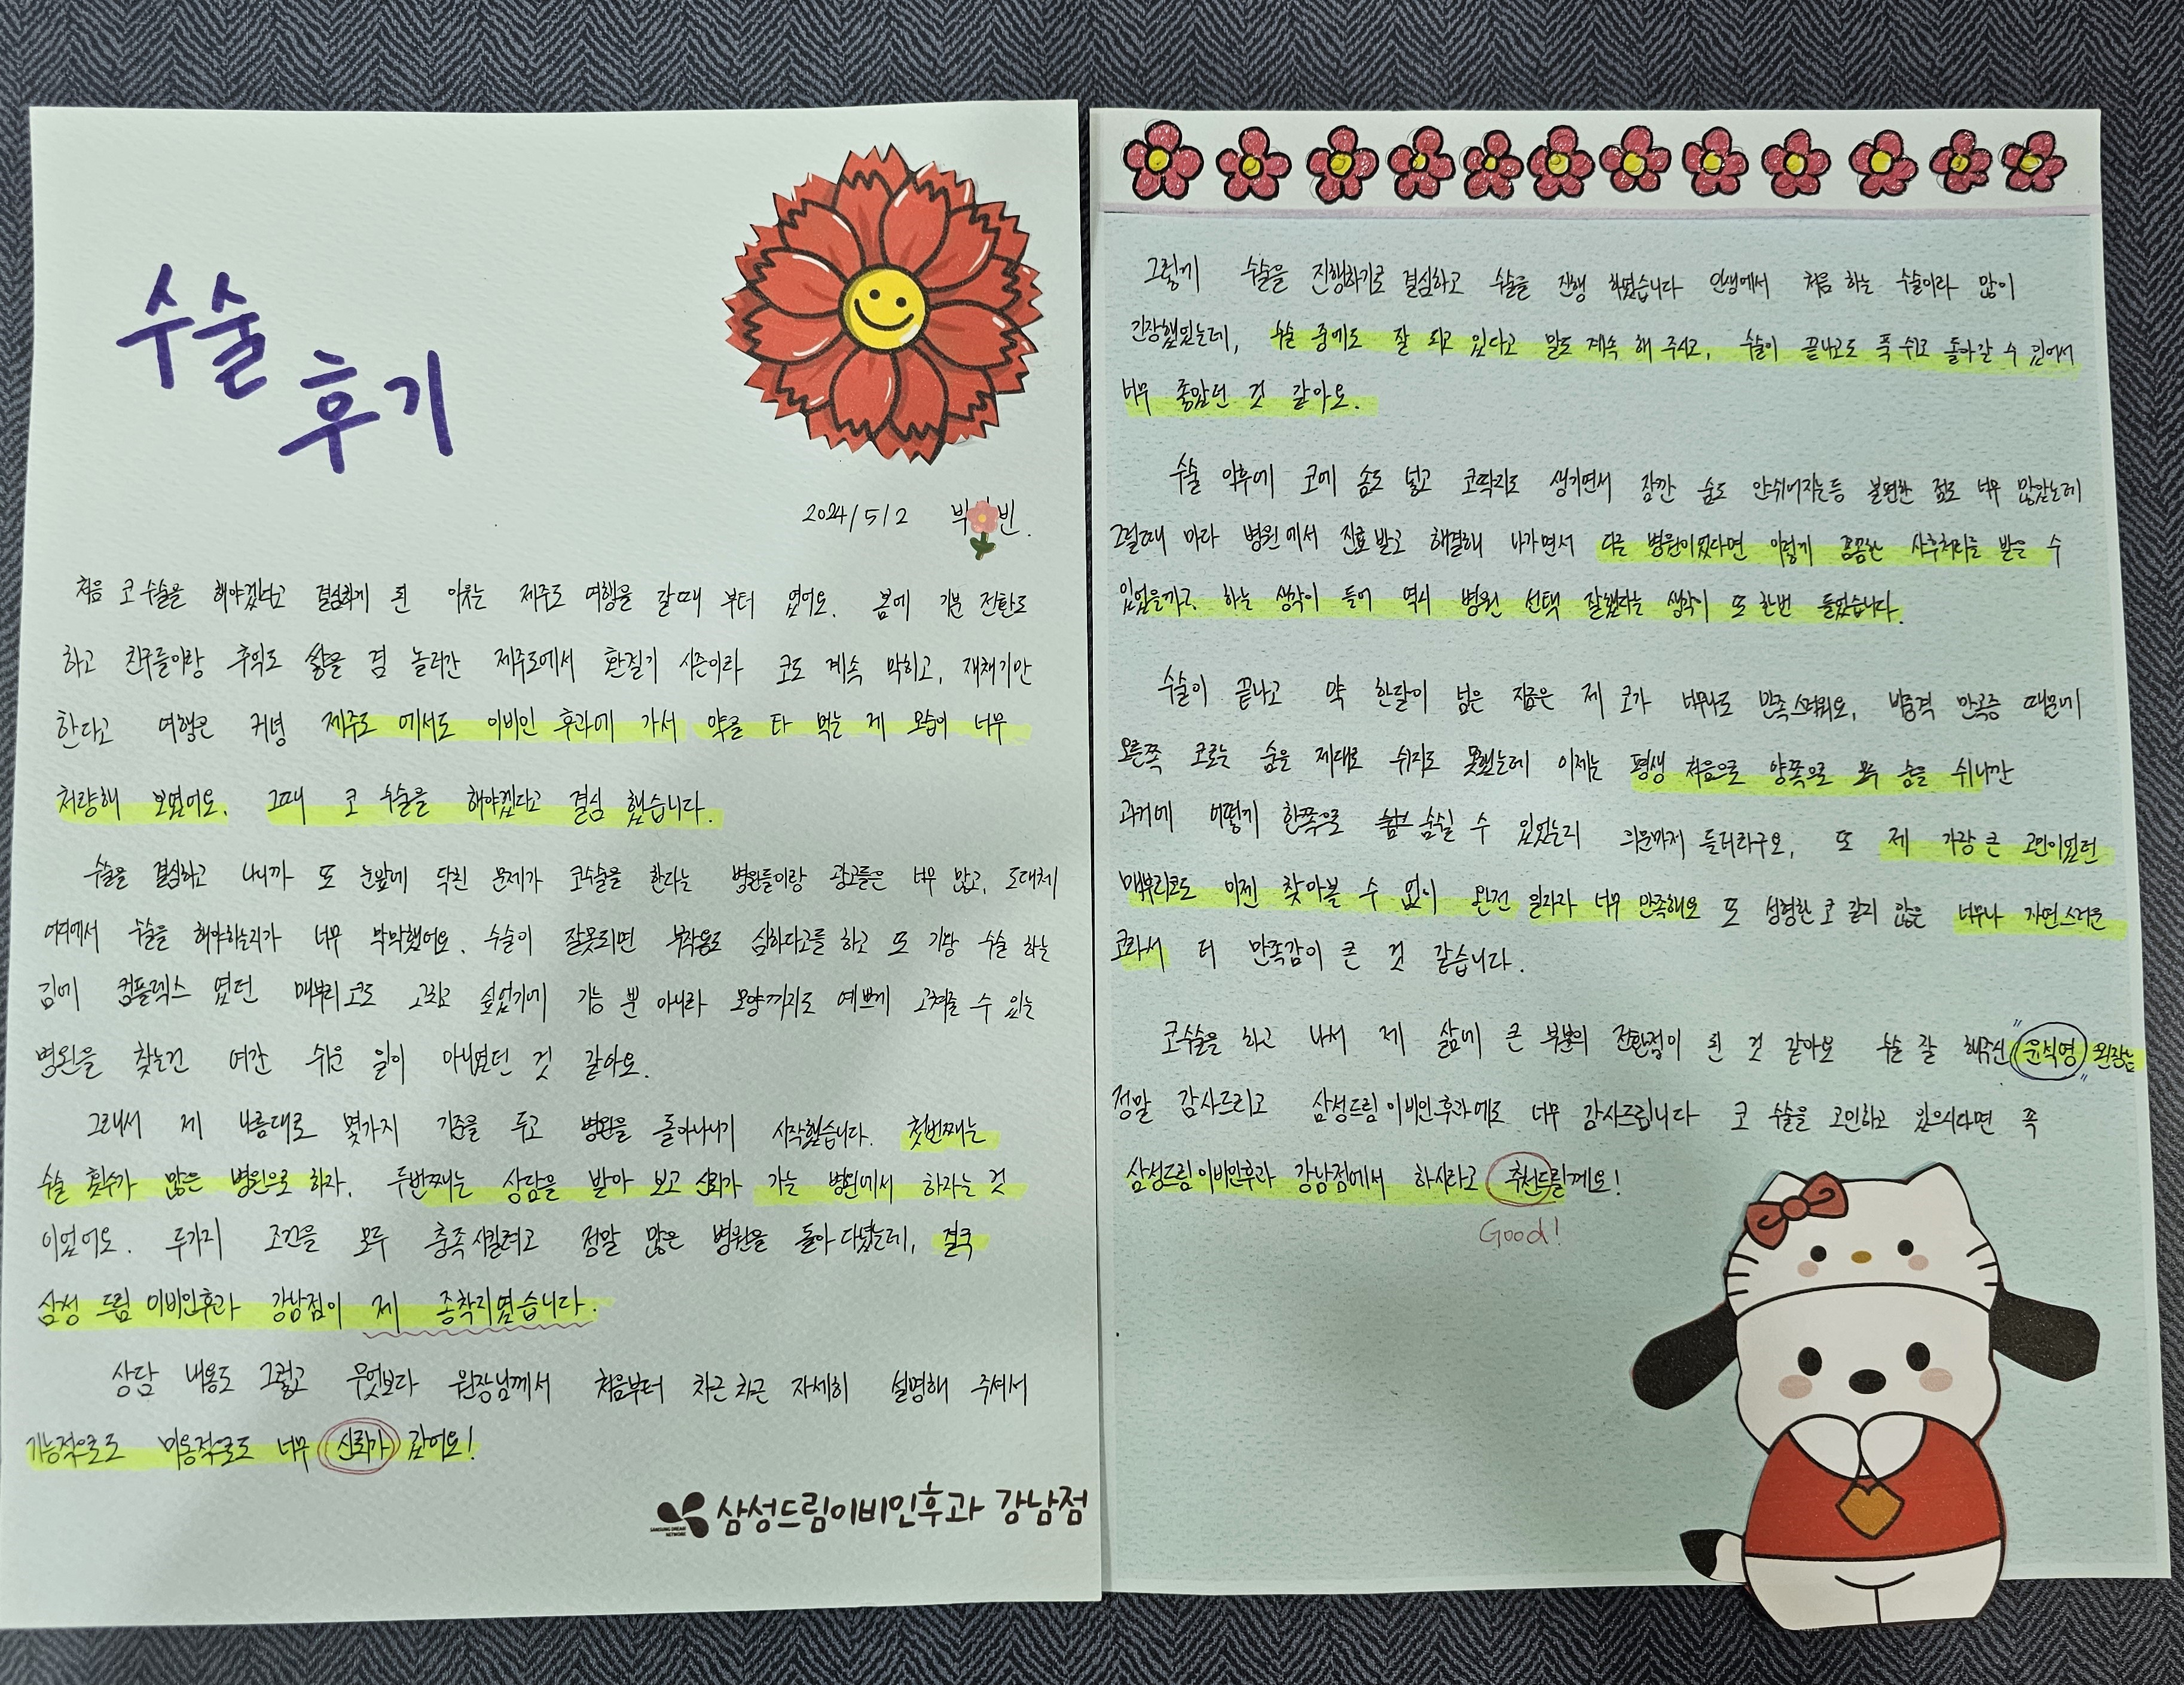 수술
후기
2024/5/2 박 빈.
처음 코 수술을 해야겠다고 결심하게 된 이유는 제주도 여행을 갈때 부터 였어요. 봄에 기분 전환도
하고 친구들이랑 추억도 쌓을 겸 놀러간 제주도에서 환절기 시즌이라 코도 계속 막히고, 재채기만
한다고 여행은 커녕 제주도 에서도 이비인 후과에 가서 약을 타 먹는 제 모습이 너무
처량해 보였어요. 그때 코 수술을 해야겠다고 결심 했습니다.
수술을 결심하고 나니까 또 눈앞에 닥친 문제가 코수술을 한다는 병원들이랑 광고들은 너무 많고, 도대체
어디에서 수술을 해야하는지가 너무 막막했어요. 수술이 잘못되면 부작용도 심하다고들 하고 또 기왕 수술 하는
김에 컴플렉스 였던 매부리코도 고치고 싶었기에 기능 뿐 아니라 모양까지도 예쁘게 고쳐줄 수 있는
병원을 찾는건 여간 쉬운 일이 아니였던 것 같아요.
그래서 제 나름대로 몇가지 기준을 두고 병원을 돌아다니기 시작했습니다. 첫번째는
수술 횟수가 많은 병원으로 하자. 두번째는 상담을 받아 보고 신뢰가 가는 병원에서 하자는 것
이었어요. 두가지 조건을 모두 충족시킬려고 정말 많은 병원을 돌아 다녔는데, 결국
삼성 드림 이비인후과 강남점이 제 종착지였습니다.
상담 내용도 그렇고 무엇보다 원장님께서 처음부터 차근 차근 자세히 설명해 주셔서
기능적으로도 미용적으로도 너무 신뢰가 갔어요!
SAMSUNG DREAM NETWORK 삼성드림이비인후과 강남점
그렇게 수술을 진행하기로 결심하고 수술을 진행 하였습니다 인생에서 처음 하는 수술이라 많이
긴장했었는데, 수술 중에도 잘 되고 있다고 말도 계속 해 주시고, 수술이 끝나고도 푹 쉬고 돌아갈 수 있어서
너무 좋았던 것 같아요.
수술 이후에 코에 솜도 넣고 코딱지도 생기면서 잠깐 숨도 안쉬어지는등 불편한 점도 너무 많았는데
그럴때 마다 병원에서 진료 받고 해결해 나가면서 다른 병원이었다면 이렇게 꼼꼼한 사후처리를 받을 수
있었을까? 하는 생각이 들어 역시 병원 선택 잘했다는 생각이 또 한번 들었습니다.
수술이 끝나고 약 한달이 넘은 지금은 제 코가 너무나도 만족스러워요, 비중격 만곡증 때문에
오른쪽 코로는 숨을 제대로 쉬지도 못했는데 이제는 평생 처음으로 양쪽으로 모두 숨을 쉬니깐
과거에 어떻게 한쪽으로 숨쉴 수 있었는지 의문까지 들더라구요, 또 제 가장 큰 고민이었던
매부리코도 이젠 찾아볼 수 없이 완전 일자라 너무 만족해요 또 성형한 코 같지 않은 너무나 자연스러운
코라서 더 만족감이 큰 것 같습니다.
코수술을 하고 나서 제 삶에 큰 부분의 전환점이 된 것 같아요 수술 잘 해주신 "윤식영" 원장님
정말 감사드리고 삼성드림 이비인후과에도 너무 감사드립니다 코 수술을 고민하고 있으시다면 꼭
삼성드림 이비인후과 강남점에서 하시라고 추천드릴께요!
Good!